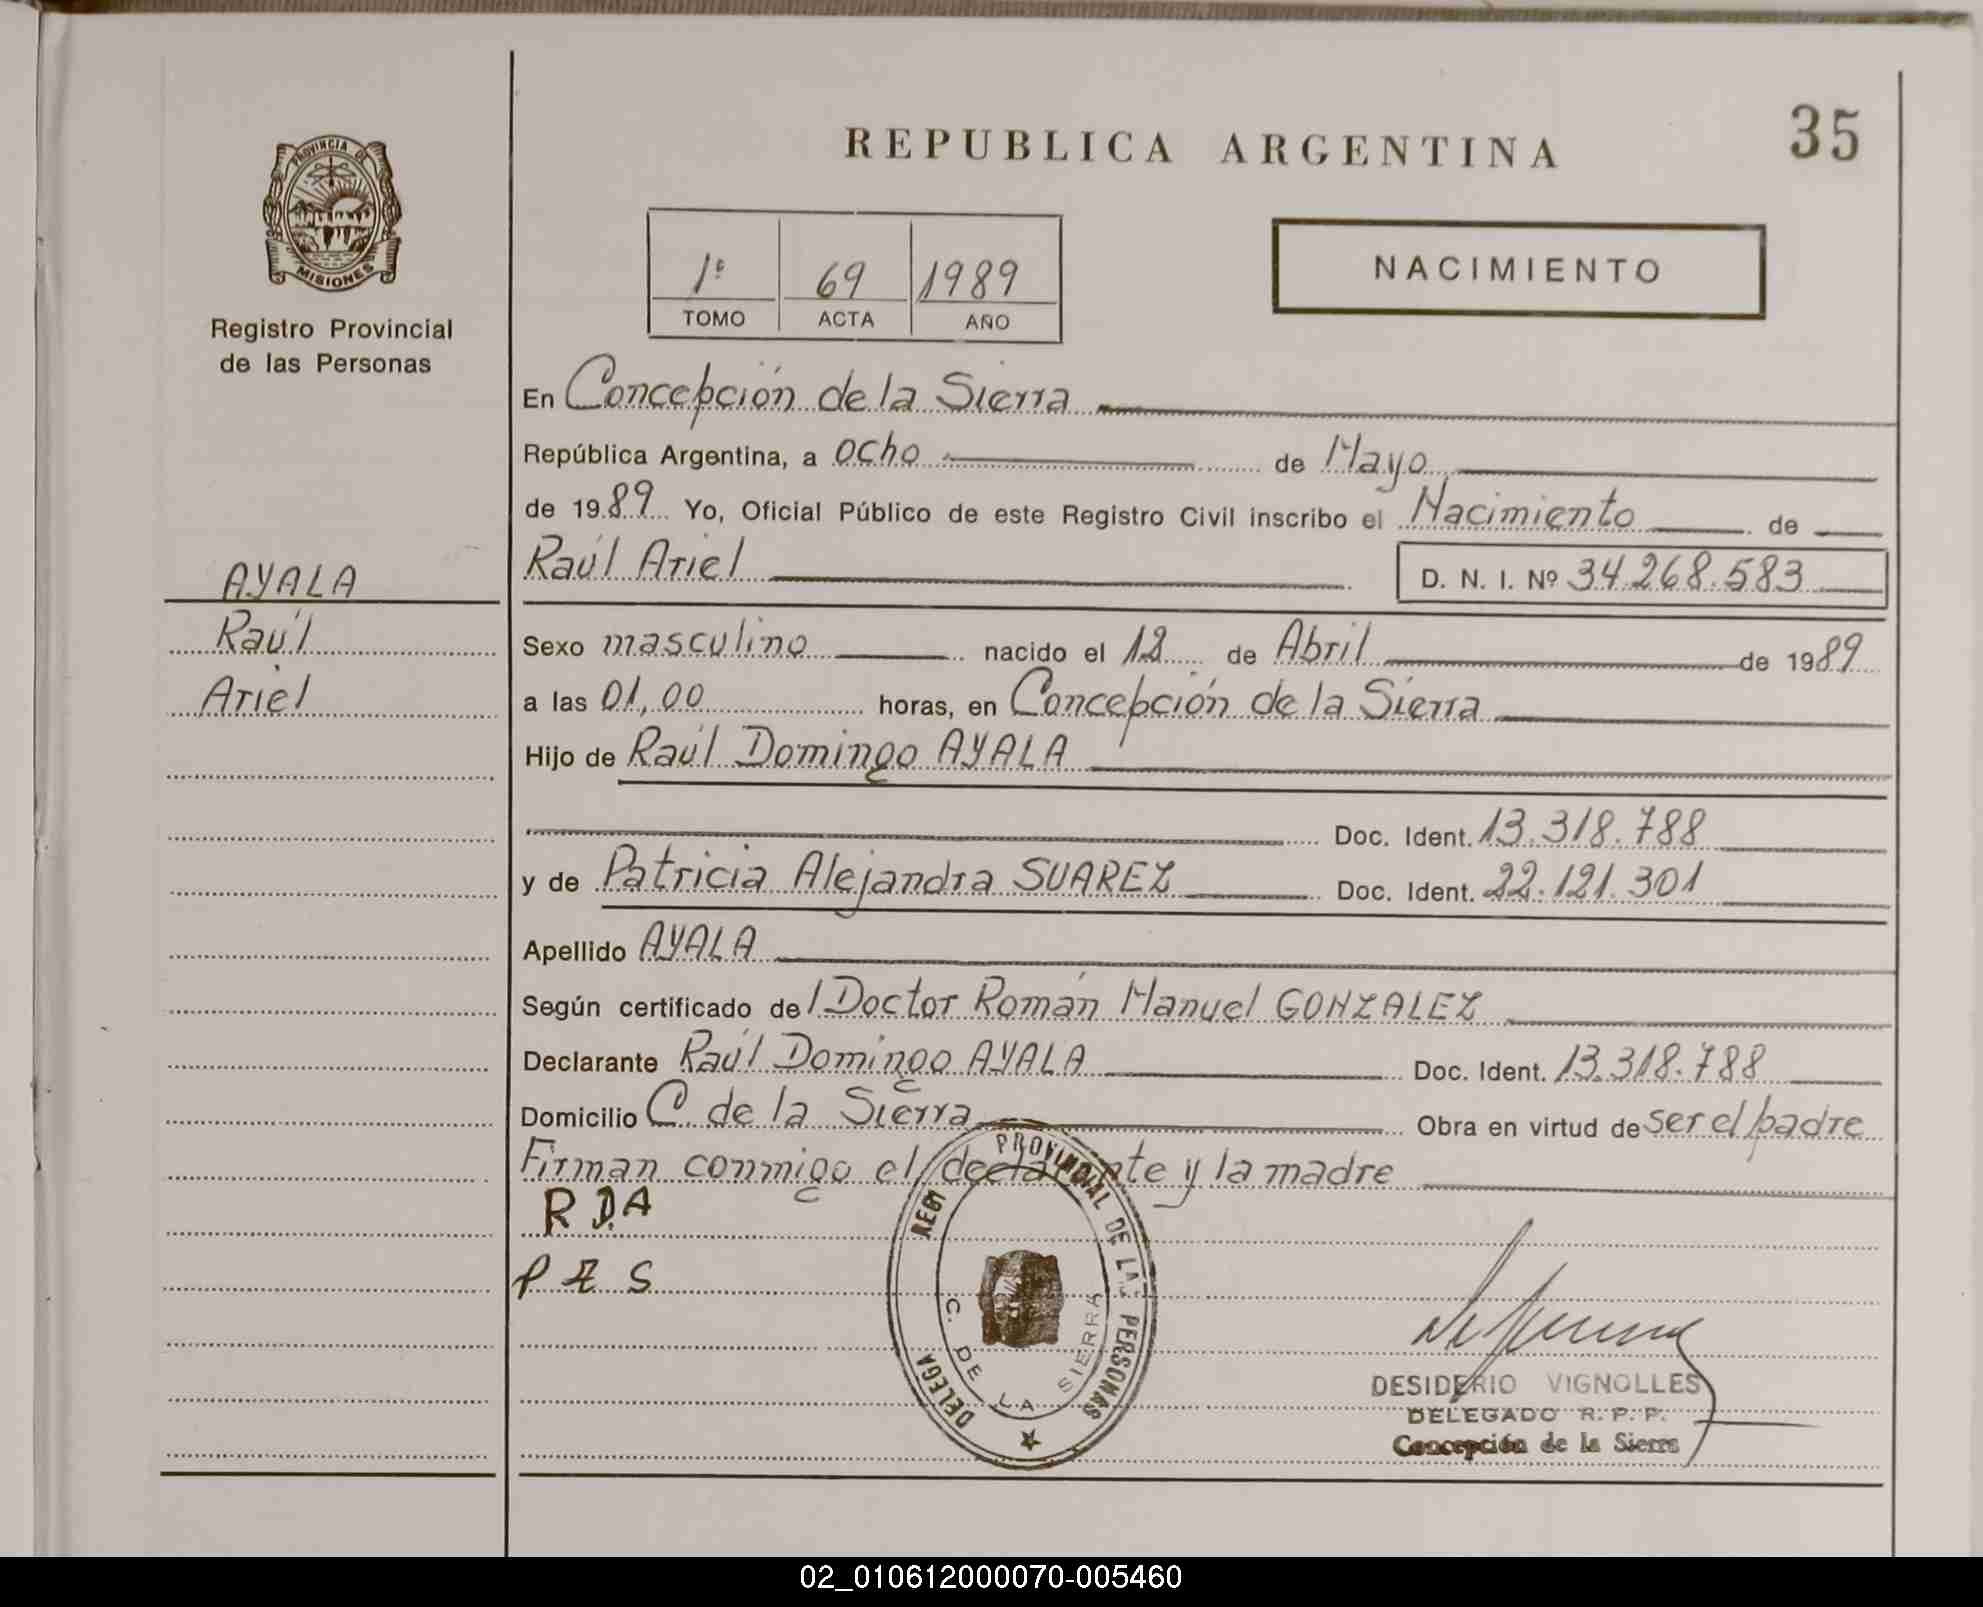 REPUBLICA ARGENTINA
35
PROVINCIA DE
MISIONES
Registro Provincial
de las Personas
1º 69 1989
TOMO ACTA AÑO
NACIMIENTO
En Concepción de la Sierra
República Argentina, a ocho de Mayo
de 1989 Yo, Oficial Público de este Registro Civil inscribo el Nacimiento de
AYALA
Raúl Ariel D. N. I. Nº 34.268.583
Raúl
Sexo masculino nacido el 12 de Abril de 1989
Ariel
a las 01,00 horas, en Concepción de la Sierra
Hijo de Raúl Domingo AYALA
Doc. Ident. 13.318.788
y de Patricia Alejandra SUAREZ Doc. Ident. 22.121.301
Apellido AYALA
Según certificado del Doctor Román Manuel GONZALEZ
Declarante Raúl Domingo AYALA Doc. Ident. 13.318.788
Domicilio C. de la Sierra Obra en virtud de ser el padre
Firman conmigo el declarante y la madre
R D.A
P A S
REGI PROVINCIAL DE LAS PERSONAS
DELEGA
C. DE LA SIERRA
DESIDERIO VIGNOLLES
DELEGADO R. P. P.
Concepción de la Sierra
02_010612000070-005460